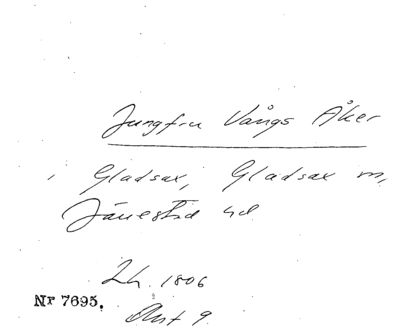 Jungfru Vångs Åker
i Gladsax, Gladsax sn,
Järrestad hd
Lh. 1806
Akt 9
Nr 7695.